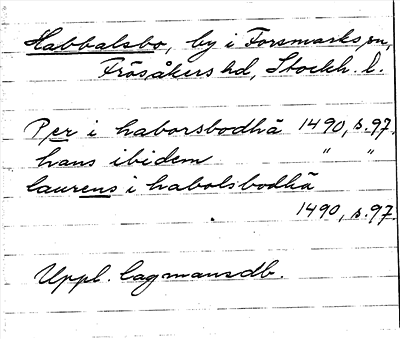 Habbalsbo, by i Forsmarks sn,
Frösåkers hd, Stockh. l.
Per i haborsbodhã 1490, s. 97.
hans ibidem " "
laurens i habolsbodhã
1490, s. 97.
Uppl. lagmansdb.